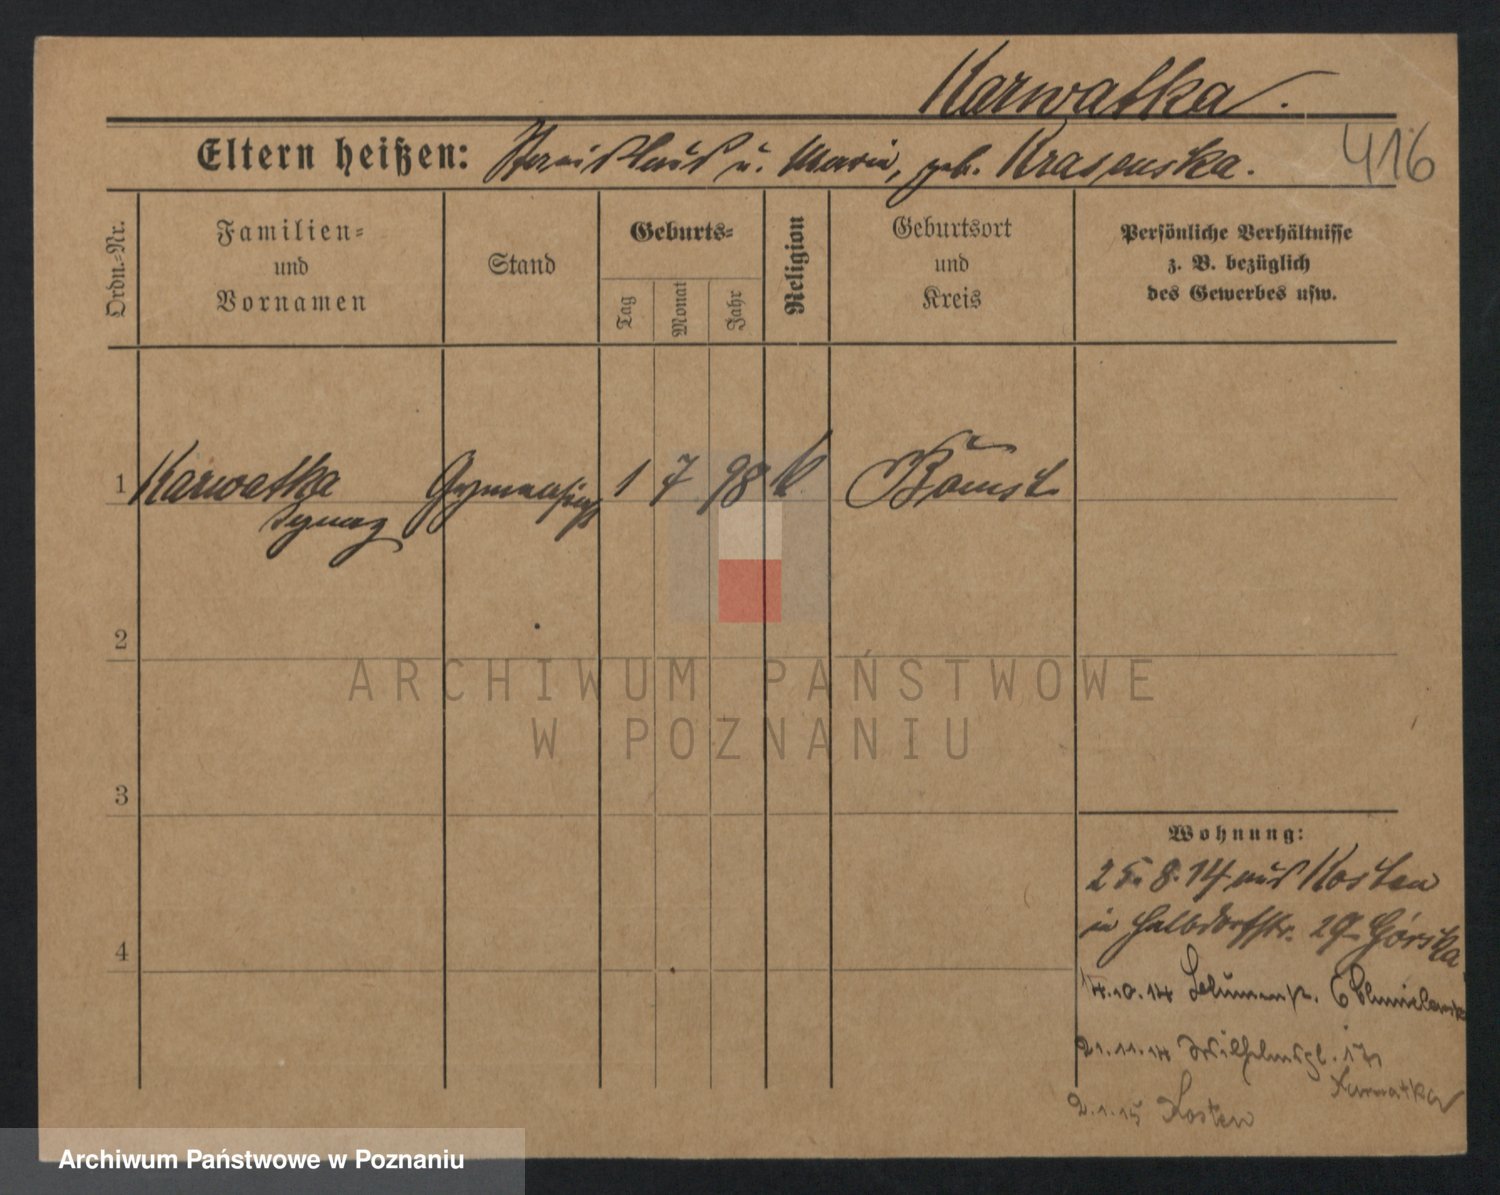 Karwatka.
Eltern heißen: Stanislaus u. Maria, geb. Krasenska.
416
Ordn.-Nr.
Familien-
und
Vornamen
Stand
Geburts-
Tag
Monat
Jahr
Religion
Geburtsort
und
Kreis
Persönliche Verhältnisse
z. B. bezüglich
des Gewerbes usw.
1 Karwatka 1 7 98 k Bomst
Ignaz
2
3
4
Wohnung:
25.8.14 aus Kosten
in Halbdorfstr. 29 Górska
14.10.14 Blumenstr. 6
21.11.14 Wilhelmspl. 17
Karwatka
2.1.15 Kosten
ARCHIWUM PAŃSTWOWE
W POZNANIU
Archiwum Państwowe w Poznaniu